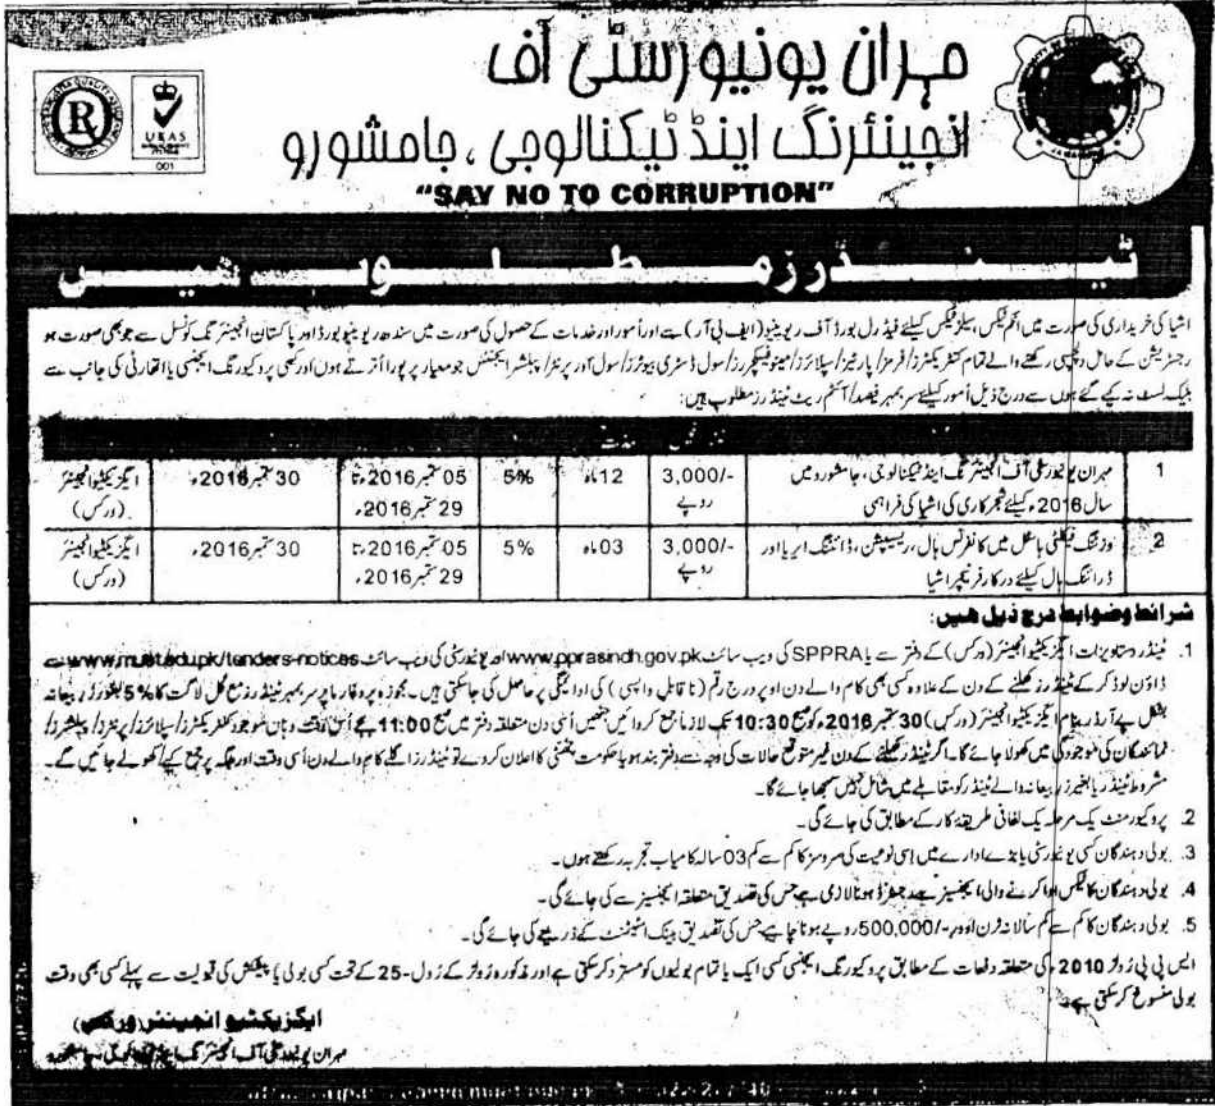 مہران یونیورسٹی آف
انجینئرنگ اینڈ ٹیکنالوجی، جامشورو
"SAY NO TO CORRUPTION"
R
UKAS
001
ٹینڈرز مطلوب ہیں
اشیا کی خریداری کی صورت میں انکم ٹیکس، سیلز ٹیکس کیلئے فیڈرل بورڈ آف ریونیو (ایف بی آر) سے اور اُمور اور خدمات کے حصول کی صورت میں سندھ ریونیو بورڈ اور پاکستان انجینئرنگ کونسل سے جو بھی صورت ہو
رجسٹریشن کے حامل دلچسپی رکھنے والے تمام کنٹریکٹرز/فرمز/پارٹیز/سپلائرز/مینوفیکچررز/سول ڈسٹری بیوٹرز/سول آور پرنٹرز/پبلشر ایجنٹس جو معیار پر پورا اُترتے ہوں اور کبھی پروکیورنگ ایجنسی یا اتھارٹی کی جانب سے
بلیک لسٹ نہ کیے گئے ہوں سے درج ذیل اُمور کیلئے سربمہر فیصد/آئٹم ریٹ ٹینڈرز مطلوب ہیں:
1 مہران یونیورسٹی آف انجینئرنگ اینڈ ٹیکنالوجی، جامشورو میں 3,000/- 12 ماہ 5% 05 ستمبر 2016ء تا 30 ستمبر 2016ء ایگزیکٹیو انجینئر
سال 2016ء کیلئے شجرکاری کی اشیا کی فراہمی روپے 29 ستمبر 2016ء (ورکس)
2 وزٹنگ فیکلٹی ہاسٹل میں کانفرنس ہال، ریسیپشن، ڈائننگ ایریا اور 3,000/- 03 ماہ 5% 05 ستمبر 2016ء تا 30 ستمبر 2016ء ایگزیکٹیو انجینئر
ڈرائنگ ہال کیلئے درکار فرنیچر اشیا روپے 29 ستمبر 2016ء (ورکس)
شرائط و ضوابط درج ذیل ھیں:
1. ٹینڈر دستاویزات ایگزیکٹیو انجینئر (ورکس) کے دفتر سے یا SPPRA کی ویب سائٹ www.pprasindh.gov.pk اور یونیورسٹی کی ویب سائٹ www.muet.edu.pk/tenders-notices سے
ڈاؤن لوڈ کر کے ٹینڈرز کھلنے کے دن کے علاوہ کسی بھی کام والے دن اوپر درج رقم (ناقابل واپسی) کی ادائیگی پر حاصل کی جا سکتی ہیں۔ مجوزہ پروفارما پر سربمہر ٹینڈرز مع کُل لاگت کا 5% بطور زر بیعانہ
بشکل پے آرڈر بنام ایگزیکٹیو انجینئر (ورکس) 30 ستمبر 2016ء کو صبح 10:30 تک لازماً جمع کروائیں جنھیں اُسی دن متعلقہ دفتر میں صبح 11:00 بجے اُس وقت وہاں موجود کنٹریکٹرز/سپلائرز/پرنٹرز/پبلشرز/
نمائندگان کی موجودگی میں کھولا جائے گا۔ اگر ٹینڈر کھلنے کے دن غیر متوقع حالات کی وجہ سے دفتر بند ہو یا حکومت چھٹی کا اعلان کر دے تو ٹینڈرز اگلے کام والے دن اُسی وقت اور جگہ پر جمع کیے/کھولے جائیں گے۔
مشروط ٹینڈر یا بغیر زر بیعانہ والے ٹینڈر کو مقابلے میں شامل نہیں سمجھا جائے گا۔
2. پروکیورمنٹ یک مرحلہ یک لفافی طریقۂ کار کے مطابق کی جائے گی۔
3. بولی دہندگان کسی یونیورسٹی یا بڑے ادارے میں اِسی نوعیت کی سروسز کا کم سے کم 03 سالہ کامیاب تجربہ رکھتے ہوں۔
4. بولی دہندگان کا ٹیکس ادا کرنے والی ایجنسیز سے رجسٹرڈ ہونا لازمی ہے جس کی تصدیق متعلقہ ایجنسیز سے کی جائے گی۔
5. بولی دہندگان کا کم سے کم سالانہ ٹرن اوور -/500,000 روپے ہونا چاہیے جس کی تصدیق بینک اسٹیٹمنٹ کے ذریعے کی جائے گی۔
ایس پی پی رُولز 2010ء کی متعلقہ دفعات کے مطابق پروکیورنگ ایجنسی کسی ایک یا تمام بولیوں کو مسترد کر سکتی ہے اور مذکورہ رُولز کے رُول-25 کے تحت کسی بولی یا پیشکش کی قبولیت سے پہلے کسی بھی وقت
بولی منسوخ کر سکتی ہے۔
ایگزیکٹیو انجینئر (ورکس)
مہران یونیورسٹی آف انجینئرنگ اینڈ ٹیکنالوجی، جامشورو